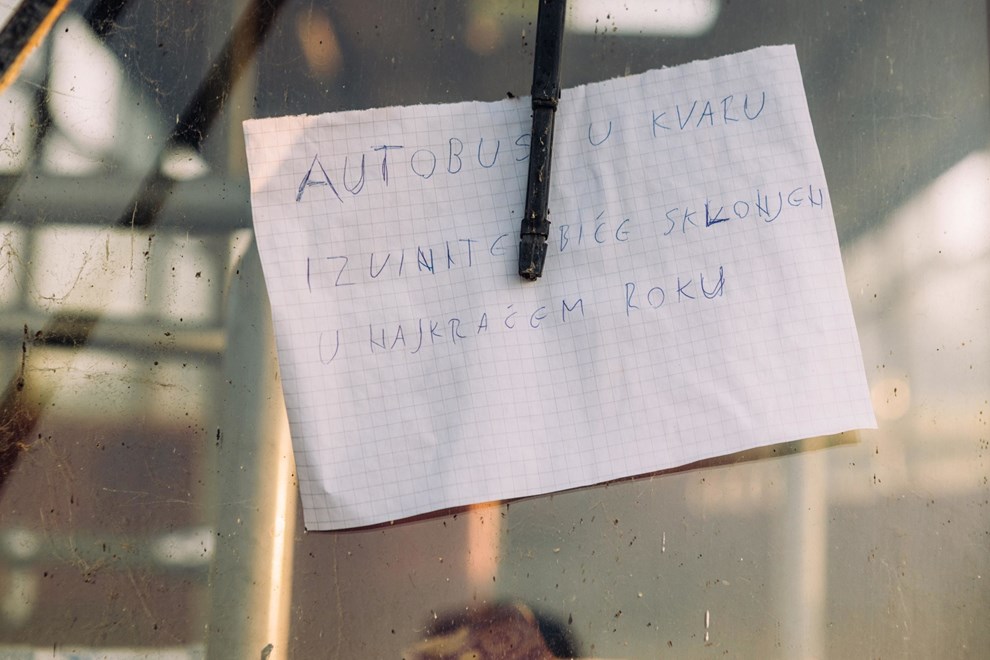 AUTOBUS U KVARU
IZVINITE BIĆE SKLONJEN
U NAJKRAĆEM ROKU